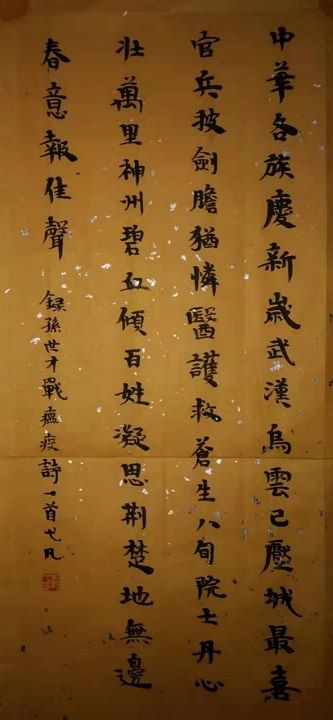 中華各族慶新歲武漢烏雲已壓城最喜
官兵披劍膽猶憐醫護救蒼生八旬院士丹心
壯萬里神州碧血傾百姓凝思荊楚地無邊
春意報佳聲
錄孫世才戰瘟疫詩一首弋凡